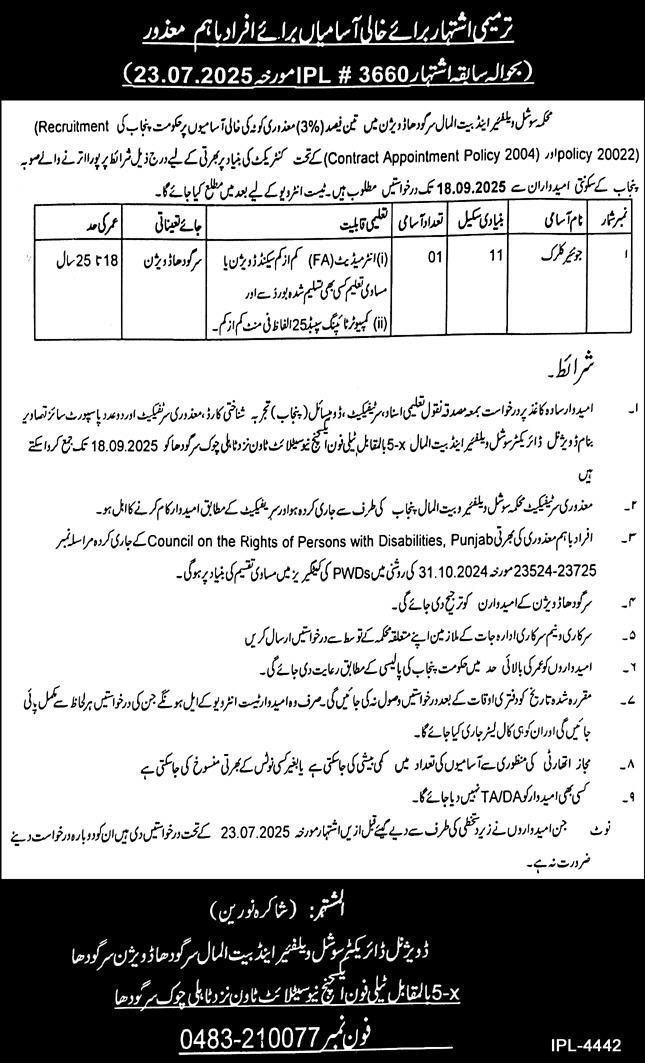 ترمیمی اشتہار برائے خالی آسامیاں برائے افراد باہم معذور
(بحوالہ سابقہ اشتہار IPL # 3660 مورخہ 23.07.2025)
محکمہ سوشل ویلفیئر اینڈ بیت المال سرگودھا ڈویژن میں تین فیصد (3%) معذوری کوٹہ کی خالی آسامیوں پر حکومت پنجاب کی (Recruitment
policy 20022) اور (Contract Appointment Policy 2004) کے تحت کنٹریکٹ کی بنیاد پر بھرتی کے لیے درج ذیل شرائط پر پورا اترنے والے صوبہ
پنجاب کے سکونتی امیدواران سے 18.09.2025 تک درخواستیں مطلوب ہیں۔ ٹیسٹ انٹرویو کے لیے بعد میں مطلع کیا جائے گا۔
نمبر شمار نام آسامی بنیادی سکیل تعداد آسامی تعلیمی قابلیت جائے تعیناتی عمر کی حد
۱ جونیئر کلرک 11 01 (i) انٹرمیڈیٹ (FA) کم از کم سیکنڈ ڈویژن یا سرگودھا ڈویژن 18 تا 25 سال
مساوی تعلیم کسی بھی تسلیم شدہ بورڈ سے اور
(ii) کمپیوٹر ٹائپنگ سپیڈ 25 الفاظ فی منٹ کم از کم۔
شرائط۔
۱۔ امیدوار سادہ کاغذ پر درخواست بمعہ مصدقہ نقول تعلیمی اسناد، سرٹیفکیٹ، ڈومیسائل (پنجاب) تجربہ شناختی کارڈ، معذوری سرٹیفکیٹ اور دو عدد پاسپورٹ سائز تصاویر
بنام ڈویژنل ڈائریکٹر سوشل ویلفیئر اینڈ بیت المال 5-x بالمقابل ٹیلی فون ایکسچینج نیو سیٹلائٹ ٹاؤن نزد ٹاہلی چوک سرگودھا کو 18.09.2025 تک جمع کروا سکتے
ہیں
۲۔ معذوری سرٹیفکیٹ محکمہ سوشل ویلفیئر و بیت المال پنجاب کی طرف سے جاری کردہ ہو اور سرٹیفکیٹ کے مطابق امیدوار کام کرنے کا اہل ہو۔
۳۔ افراد باہم معذوری کی بھرتی Council on the Rights of Persons with Disabilities, Punjab کے جاری کردہ مراسلہ نمبر
23524-23725 مورخہ 31.10.2024 کی روشنی میں PWDs کی کیٹگریز میں مساوی تقسیم کی بنیاد پر ہوگی۔
۴۔ سرگودھا ڈویژن کے امیدواران کو ترجیح دی جائے گی۔
۵۔ سرکاری و نیم سرکاری ادارہ جات کے ملازمین اپنے متعلقہ محکمہ کے توسط سے درخواستیں ارسال کریں
۶۔ امیدواروں کو عمر کی بالائی حد میں حکومت پنجاب کی پالیسی کے مطابق رعایت دی جائے گی۔
۷۔ مقررہ شدہ تاریخ کو دفتری اوقات کے بعد درخواستیں وصول نہ کی جائیں گی۔ صرف وہ امیدوار ٹیسٹ انٹرویو کے اہل ہونگے جن کی درخواستیں ہر لحاظ سے مکمل پائی
جائیں گی اور ان کو ہی کال لیٹر جاری کیا جائے گا۔
۸۔ مجاز اتھارٹی کی منظوری سے آسامیوں کی تعداد میں کمی بیشی کی جاسکتی ہے یا بغیر کسی نوٹس کے بھرتی منسوخ کی جاسکتی ہے
۹۔ کسی بھی امیدوار کو TA/DA نہیں دیا جائے گا۔
نوٹ جن امیدواروں نے زیر دستخطی کی طرف سے دیے گئے قبل ازیں اشتہار مورخہ 23.07.2025 کے تحت درخواستیں دی ہیں ان کو دوبارہ درخواست دینے
ضرورت نہ ہے۔
المشتہر: (شاکرہ نورین)
ڈویژنل ڈائریکٹر سوشل ویلفیئر اینڈ بیت المال سرگودھا ڈویژن سرگودھا
5-x بالمقابل ٹیلی فون ایکسچینج نیو سیٹلائٹ ٹاون نزد ٹاہلی چوک سرگودھا
فون نمبر 0483-210077
IPL-4442